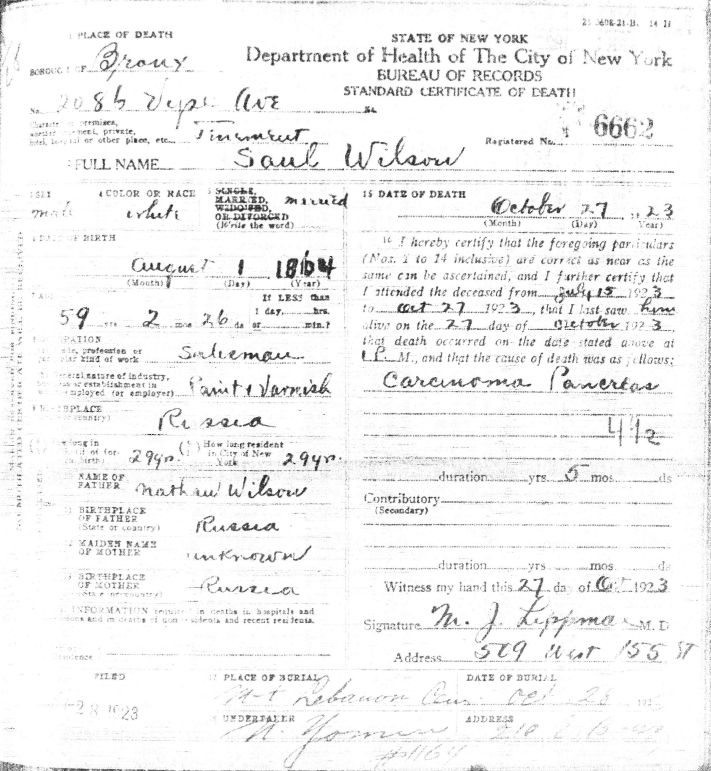 PLACE OF DEATH
STATE OF NEW YORK
Department of Health of The City of New York
BUREAU OF RECORDS
STANDARD CERTIFICATE OF DEATH
BOROUGH OF Bronx
No. 2086 Vyse Ave St.
Character of premises,
whether tenement, private,
hotel, hospital or other place, etc. Tenement
Registered No. 6662
FULL NAME Saul Wilson
SEX male
4 COLOR OR RACE white
5 SINGLE, MARRIED, WIDOWED, OR DIVORCED (Write the word) married
DATE OF BIRTH
August 1 1864
(Month) (Day) (Year)
AGE
59 yrs 2 mos 26 ds
If LESS than
1 day, hrs.
or min.?
OCCUPATION
profession or
kind of work Salesman
General nature of industry,
business or establishment in
employed (or employer) Paint & Varnish
BIRTHPLACE
country) Russia
long in
of for-
birth) 29 yr.
How long resident
in City of New
York 29 yr.
NAME OF
FATHER Nathan Wilson
BIRTHPLACE
OF FATHER
(State or country) Russia
MAIDEN NAME
OF MOTHER unknown
BIRTHPLACE
OF MOTHER
(State or country) Russia
INFORMATION required in deaths in hospitals and
and in deaths of non-residents and recent residents.
15 DATE OF DEATH
October 27 1923
(Month) (Day) Year)
16 I hereby certify that the foregoing particulars
(Nos. 1 to 14 inclusive) are correct as near as the
same can be ascertained, and I further certify that
I attended the deceased from July 15 1923
to Oct 27 1923, that I last saw him
alive on the 27 day of October 1923,
that death occurred on the date stated above at
1 P. M., and that the cause of death was as follows:
Carcinoma Pancreas
4 1/2
duration yrs 5 mos ds
Contributory
(Secondary)
duration yrs mos ds
Witness my hand this 27 day of Oct 1923
Signature M. J. Leppman M. D
Address 509 West 155 St
FILED
28 1923
17 PLACE OF BURIAL
Mt Lebanon Cem.
DATE OF BURIAL
Oct 28 192
UNDERTAKER
ADDRESS